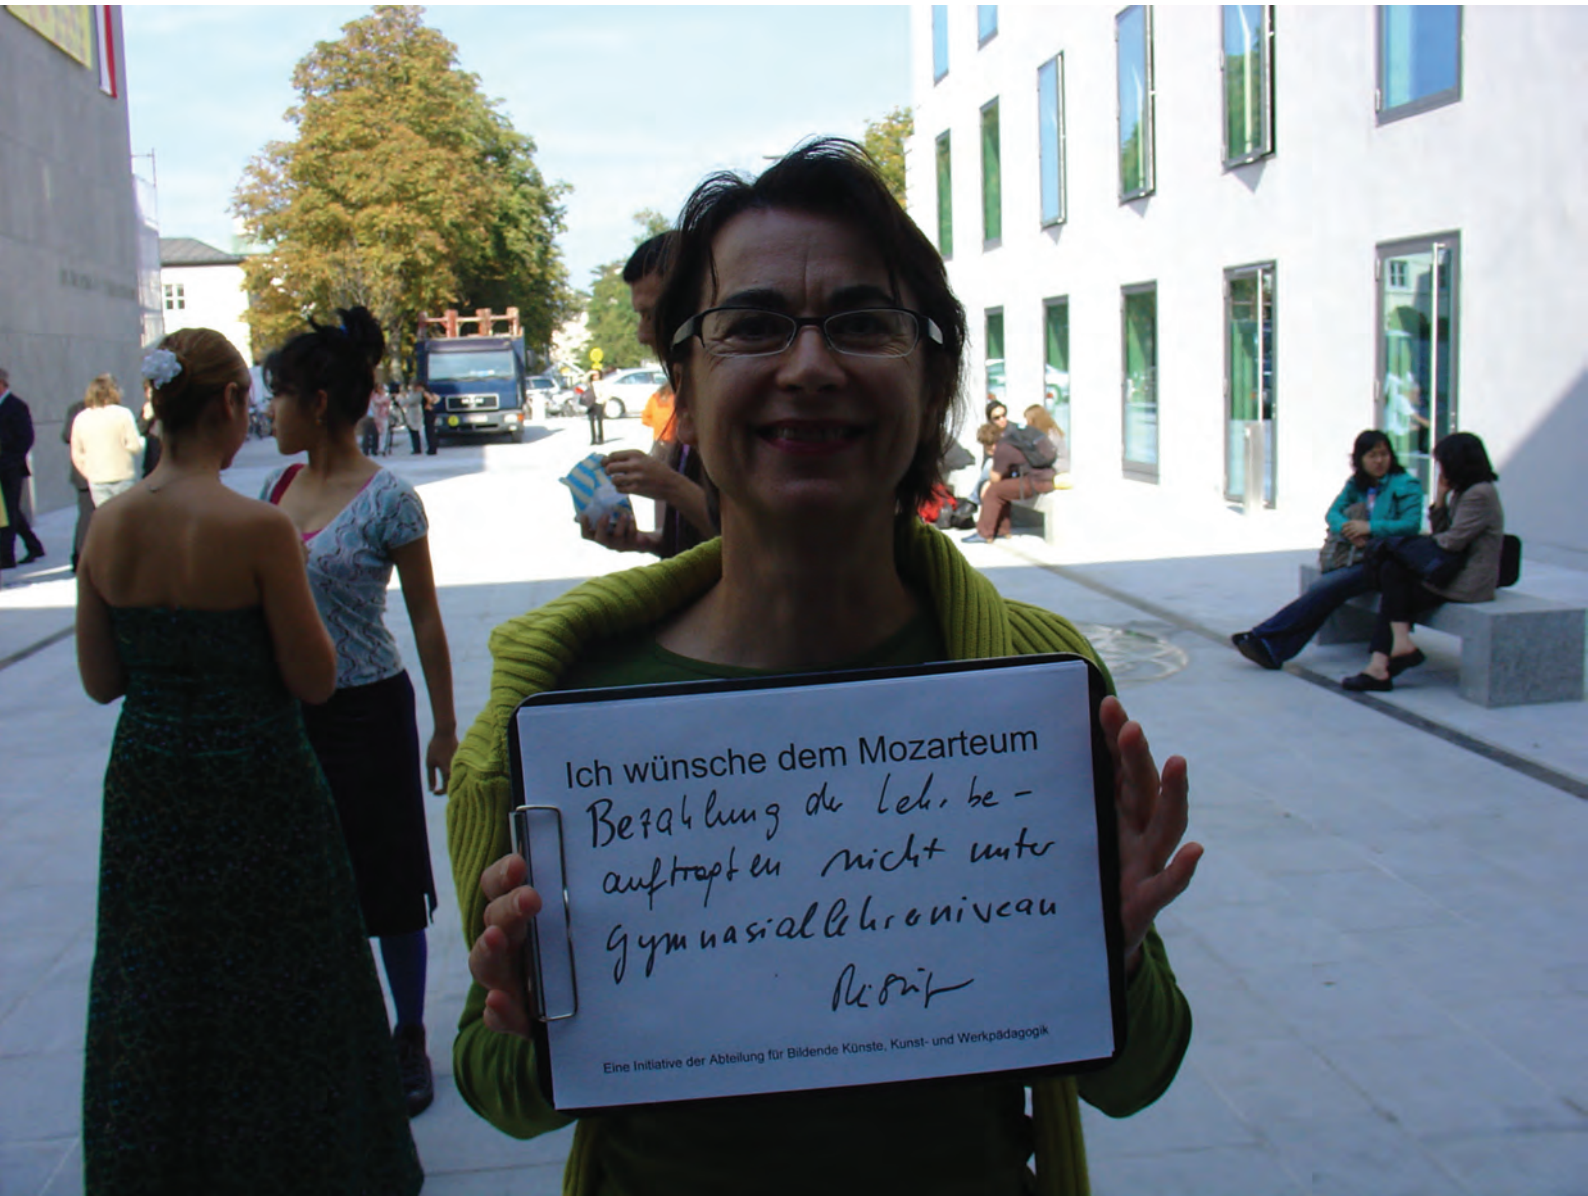 Ich wünsche dem Mozarteum
Bezahlung der Lehrbe-
auftragten nicht unter
gymnasiallehrerniveau
Eine Initiative der Abteilung für Bildende Künste, Kunst- und Werkpädagogik